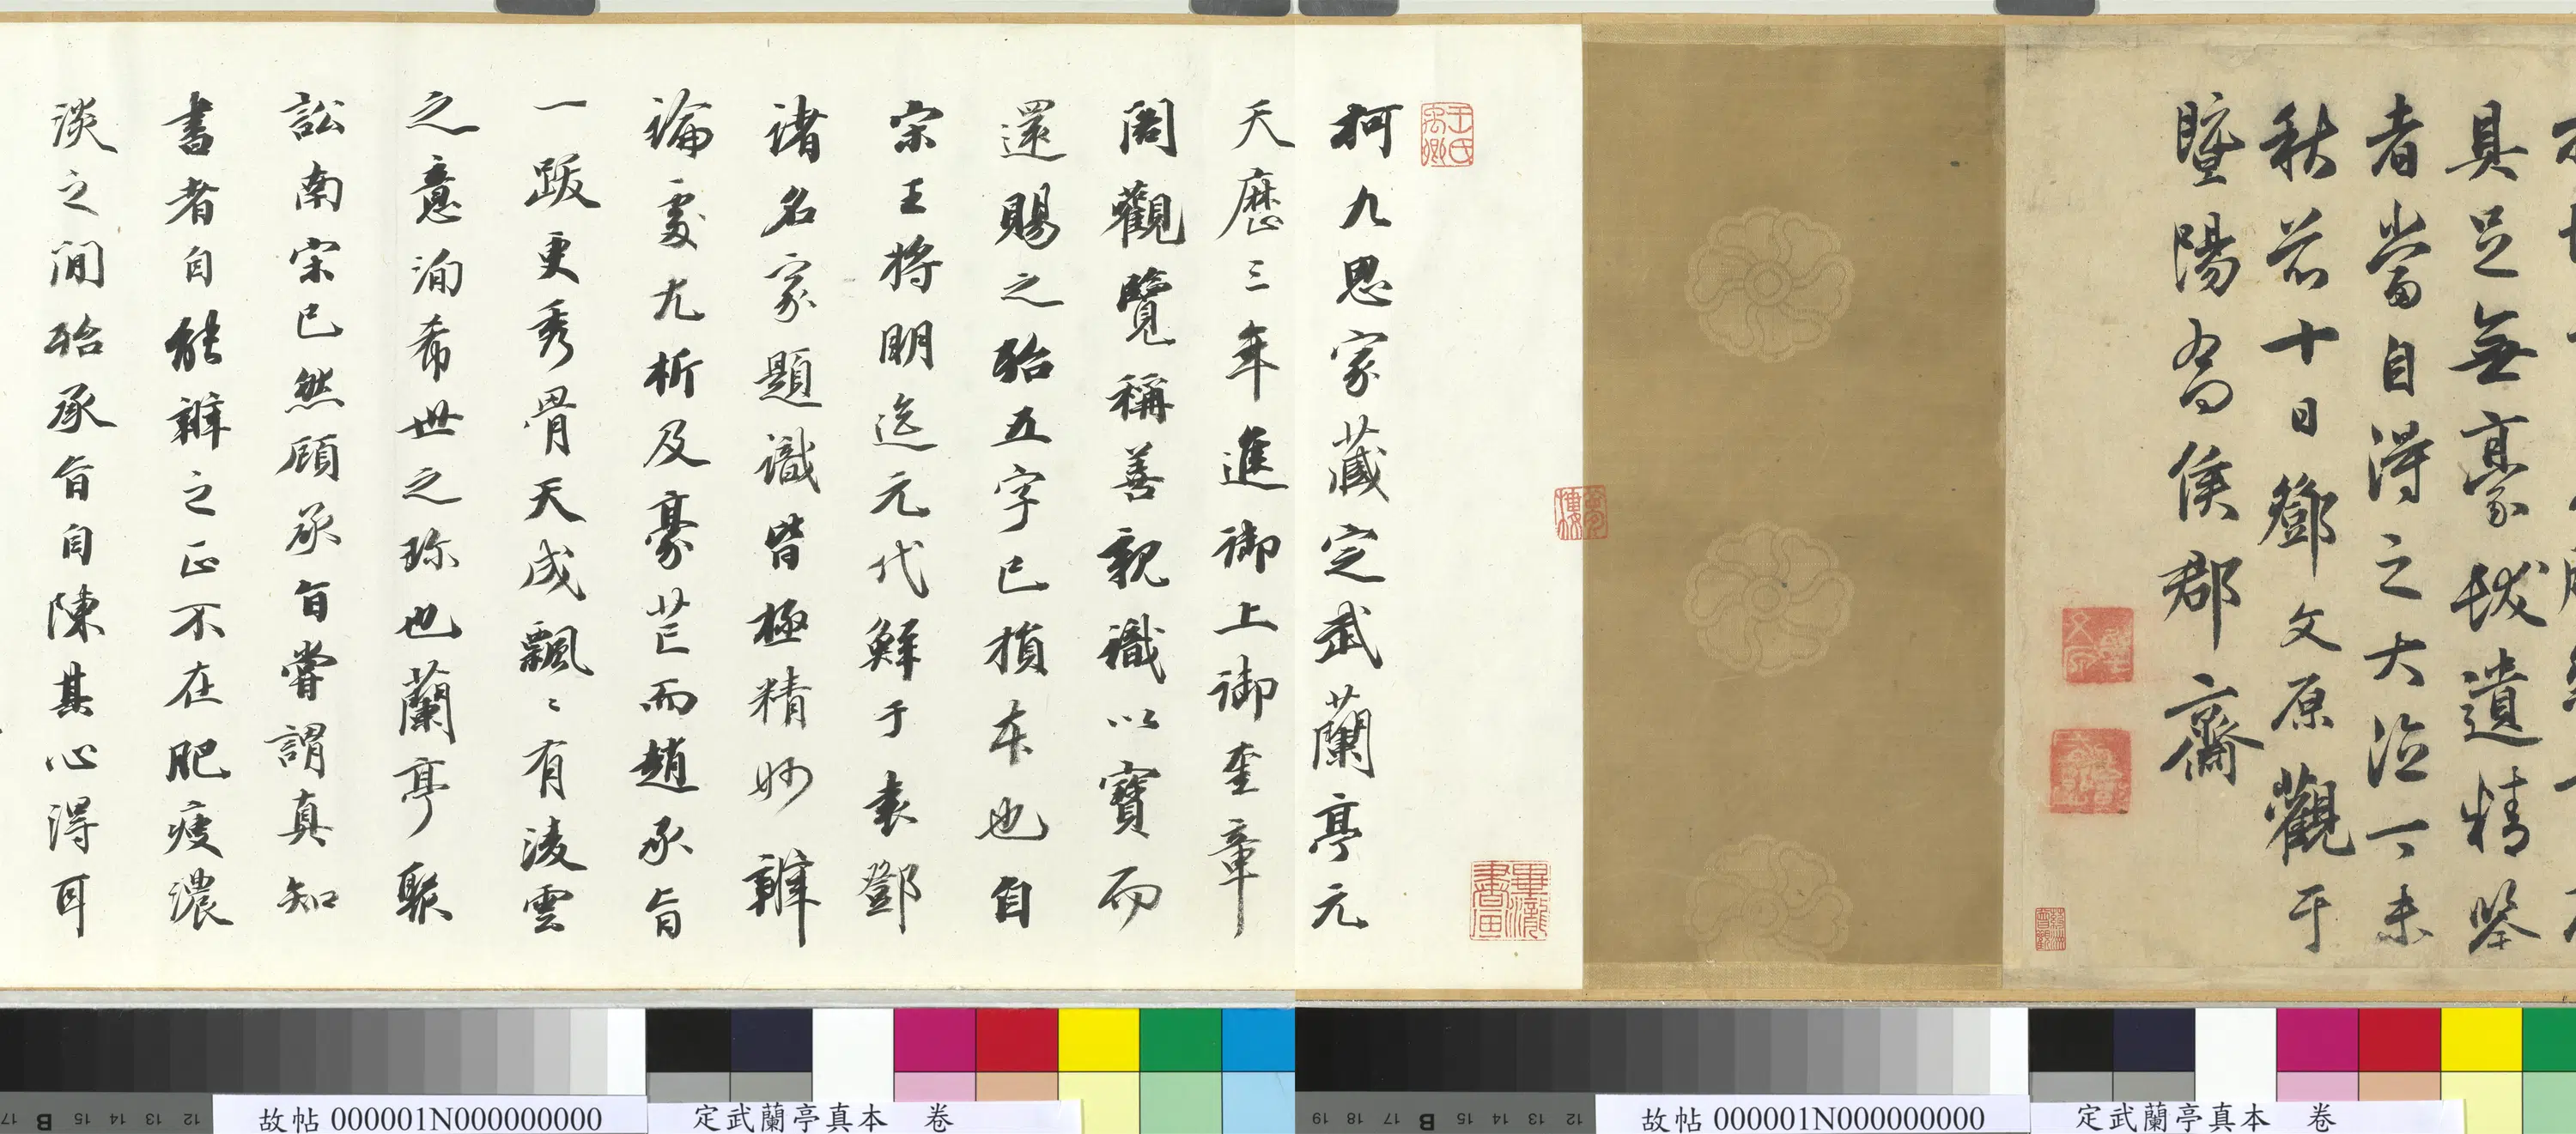 具足無豪發遺精鑒
者當自得之大德丁未
秋前十日鄧文原觀于
暨陽寓侯郡齋
柯九思家藏定武蘭亭元
天曆三年進御上御奎章
閣觀覽稱善親識以寶而
還賜之殆五字已損本也自
宋王將明迄元代鮮于袁鄧
諸名家題識皆極精妙辨
論處尤析及豪芒而趙承旨
一跋更秀骨天成飄〻有淩雲
之意洵希世之珍也蘭亭聚
訟南宋已然顧承旨嘗謂真知
書者自能辨之正不在肥瘦濃
淡之間殆承旨自陳其心得耳
王氏禹卿
畢瀧書画
故帖 000001N000000000
定武蘭亭真本 卷
故帖 000001N000000000
定武蘭亭真本 卷